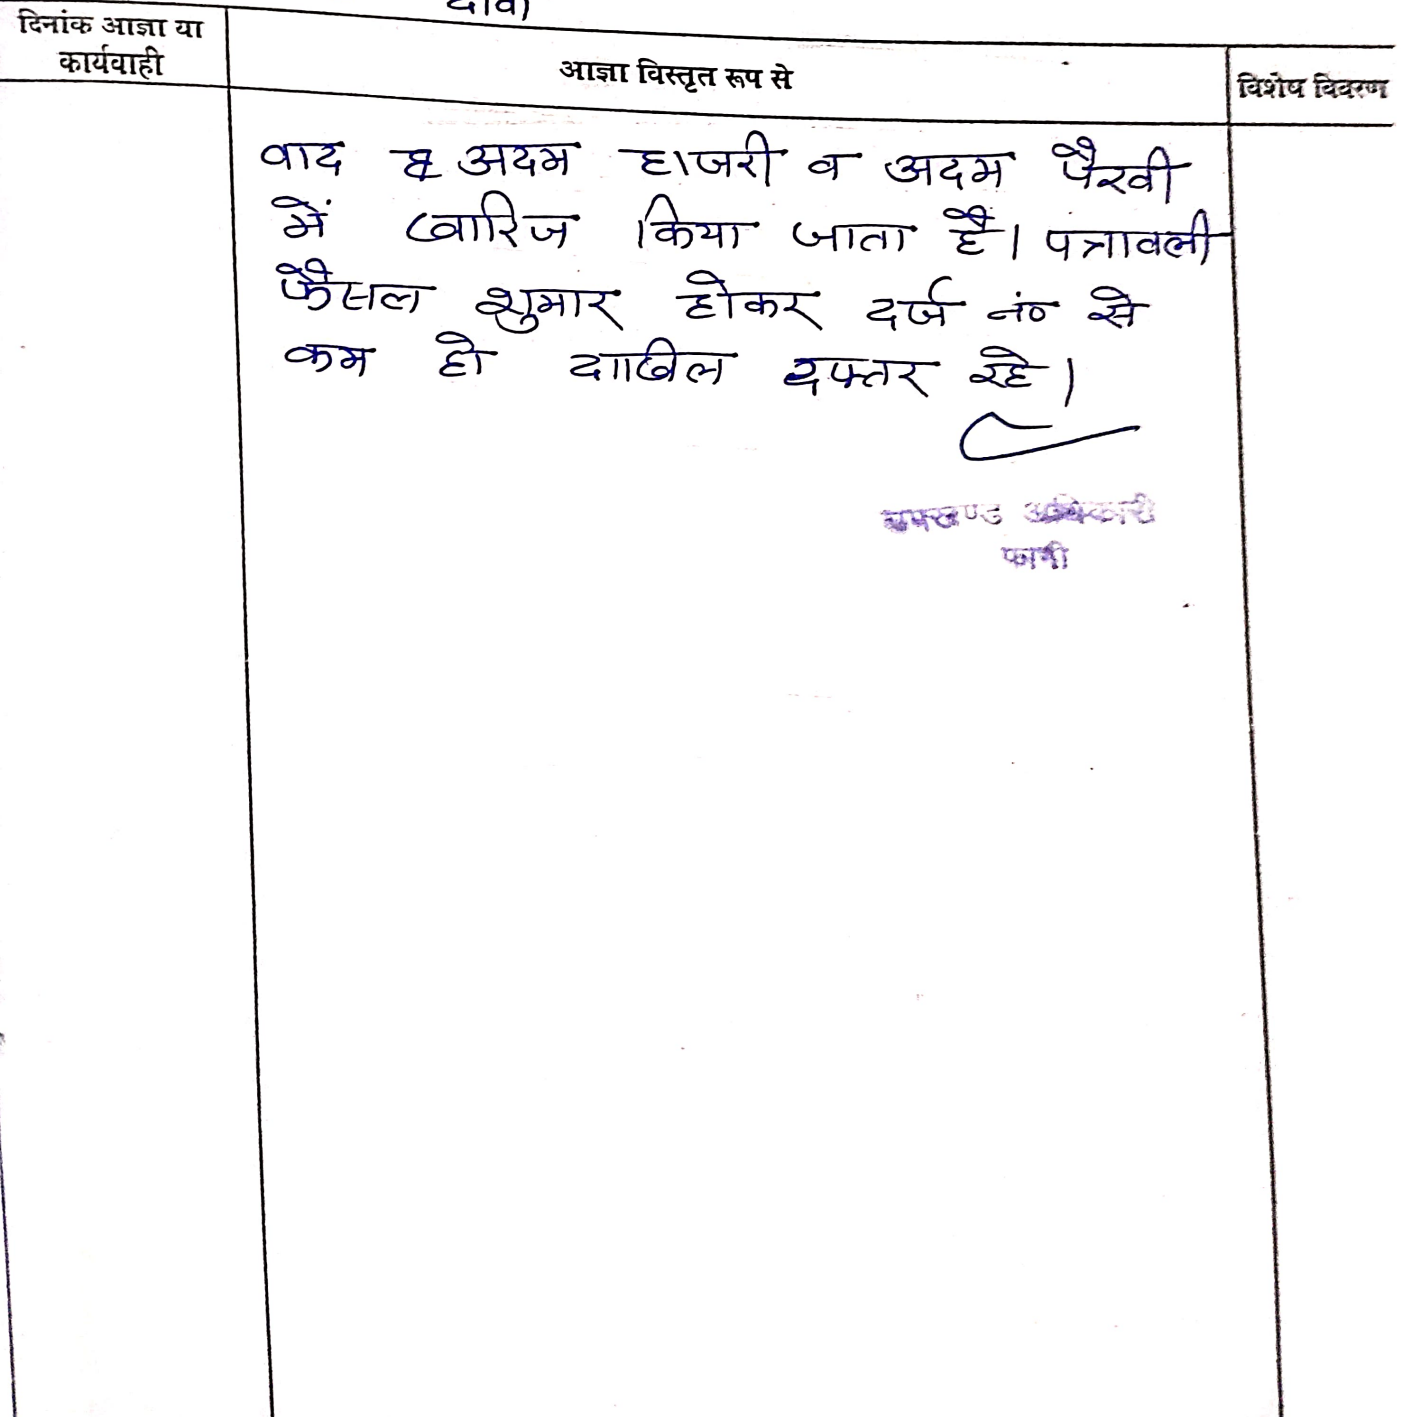 दावा
दिनांक आज्ञा या
कार्यवाही
आज्ञा विस्तृत रूप से
विशेष विवरण
वाद अदम हाजरी व अदम पैरवी
में खारिज किया जाता है। पत्रावली
फैसल शुमार होकर दर्ज नं० से
कम हो दाखिल दफ्तर रहे।
उपखण्ड अधिकारी
फागी